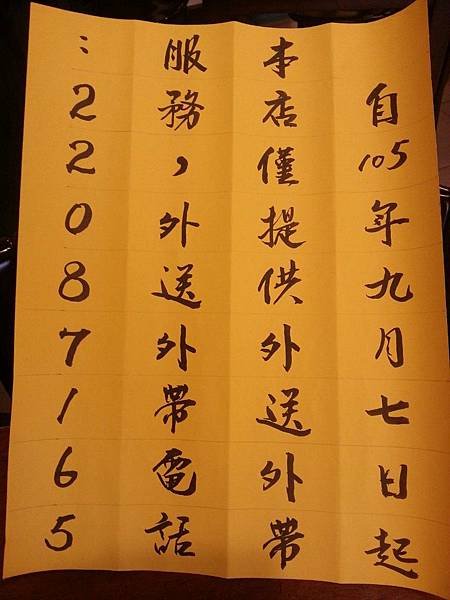 自105年九月七日起
本店僅提供外送外帶
服務，外送外帶電話
：22087165